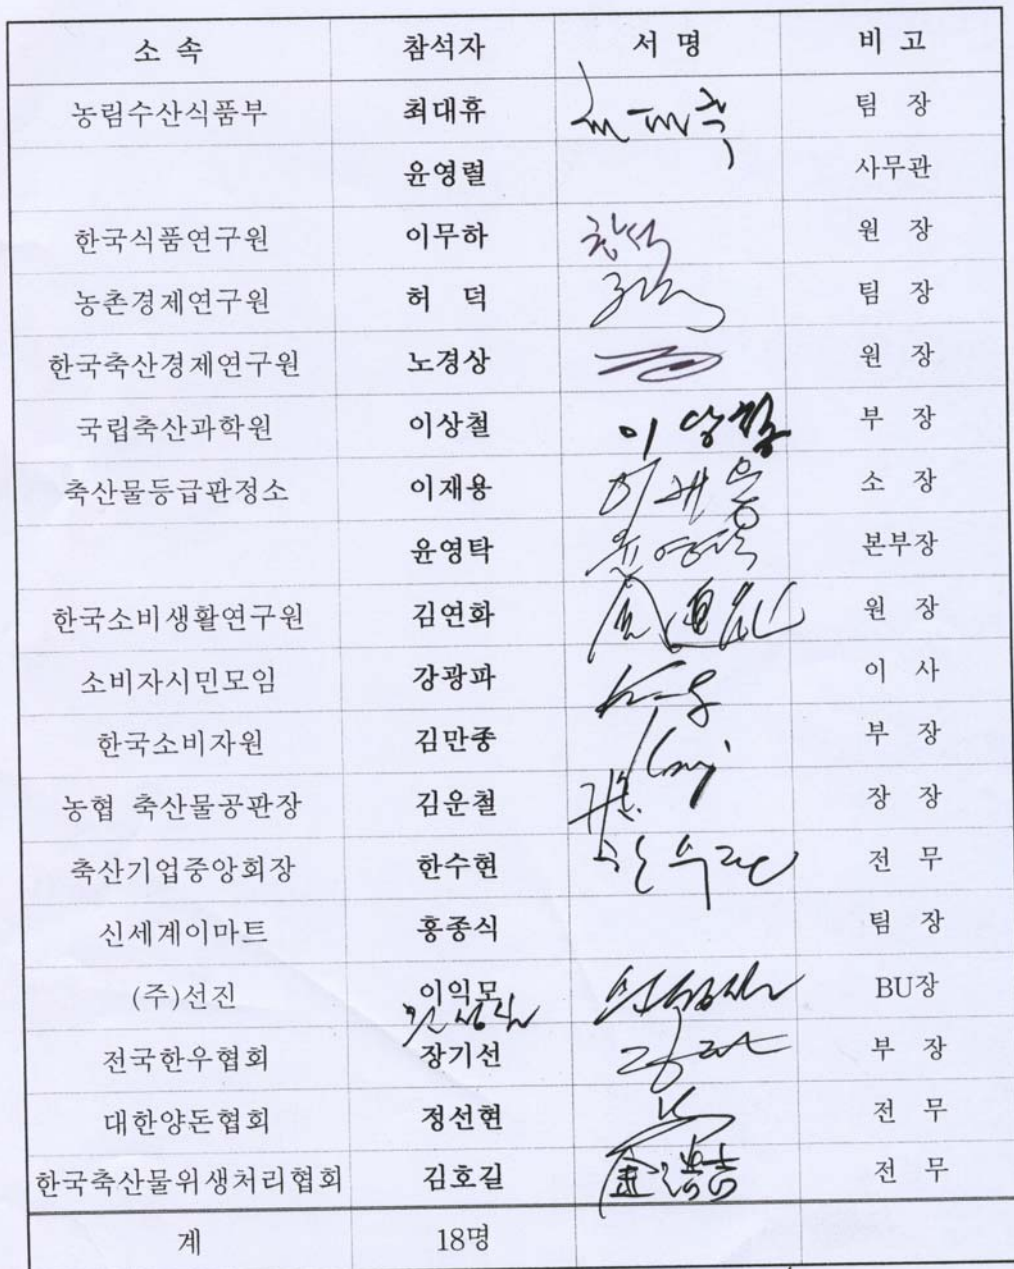 소 속 참석자 서 명 비 고
농림수산식품부 최대휴 팀 장
윤영렬 사무관
한국식품연구원 이무하 참석 원 장
농촌경제연구원 허 덕 팀 장
한국축산경제연구원 노경상 원 장
국립축산과학원 이상철 이상철 부 장
축산물등급판정소 이재용 이재용 소 장
윤영탁 윤영탁 본부장
한국소비생활연구원 김연화 원 장
소비자시민모임 강광파 이 사
한국소비자원 김만종 부 장
농협 축산물공판장 김운철 장 장
축산기업중앙회장 한수현 한수현 전 무
신세계이마트 홍종식 팀 장
(주)선진 이익모 BU장
전국한우협회 장기선 부 장
대한양돈협회 정선현 전 무
한국축산물위생처리협회 김호길 전 무
계 18명